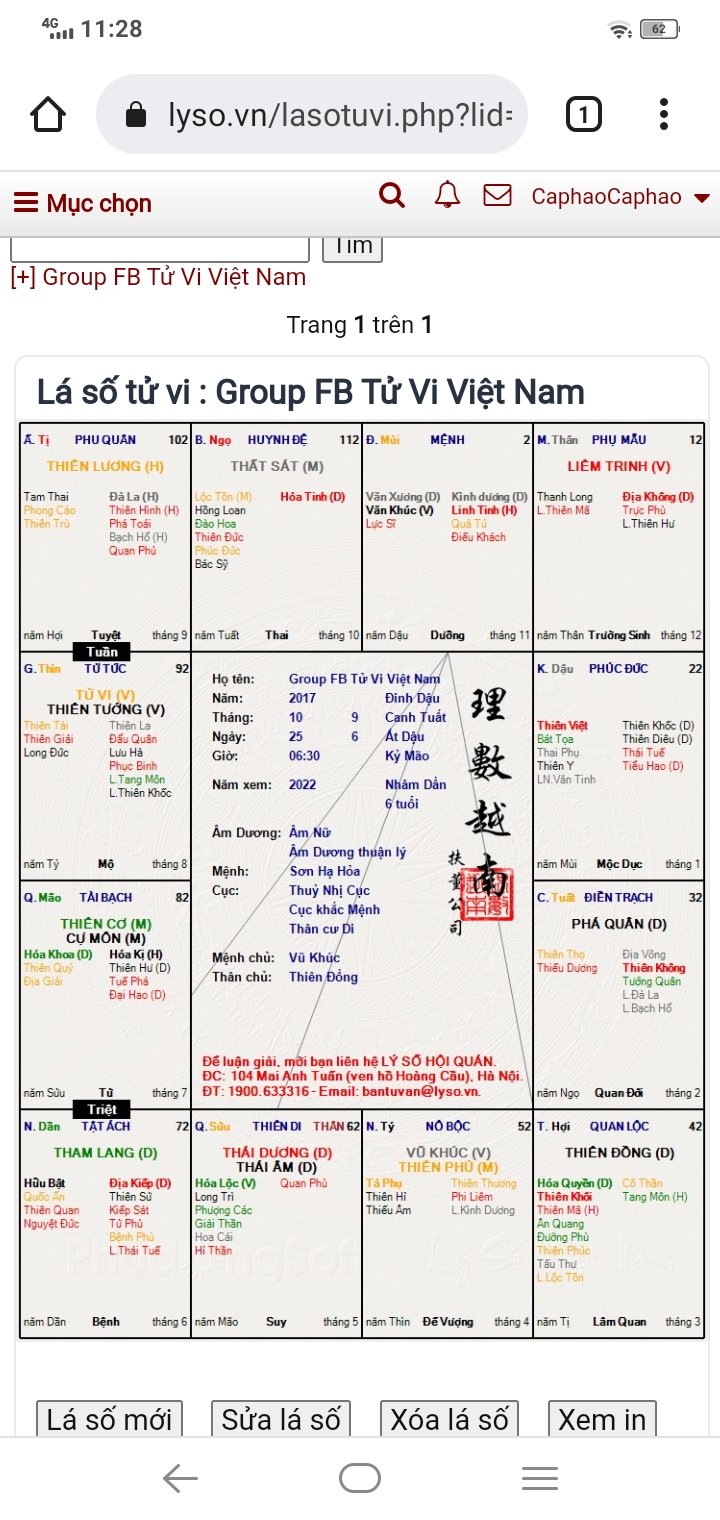 4G 11:28 62
lyso.vn/lasotuvi.php?lid=
1
Mục chọn
CaphaoCaphao
Tìm
[+] Group FB Tử Vi Việt Nam
Trang 1 trên 1
Lá số tử vi : Group FB Tử Vi Việt Nam
Ấ. Tị PHU QUÂN 102
THIÊN LƯƠNG (H)
Tam Thai Đà La (H)
Phong Cáo Thiên Hình (H)
Thiên Trù Phá Toái
Bạch Hổ (H)
Quan Phủ
năm Hợi Tuyệt tháng 9
B. Ngọ HUYNH ĐỆ 112
THẤT SÁT (M)
Lộc Tồn (M) Hỏa Tinh (D)
Hồng Loan
Đào Hoa
Thiên Đức
Phúc Đức
Bác Sỹ
năm Tuất Thai tháng 10
Đ. Mùi MỆNH 2
Văn Xương (D) Kình dương (D)
Văn Khúc (V) Linh Tinh (H)
Lực Sĩ Quả Tú
Điếu Khách
năm Dậu Dưỡng tháng 11
M. Thân PHỤ MẪU 12
LIÊM TRINH (V)
Thanh Long Địa Không (D)
L.Thiên Mã Trực Phù
L.Thiên Hư
năm Thân Trường Sinh tháng 12
Tuần
G. Thìn TỬ TỨC 92
TỬ VI (V)
THIÊN TƯỚNG (V)
Thiên Tài Thiên La
Thiên Giải Đẩu Quân
Long Đức Lưu Hà
Phục Binh
L.Tang Môn
L.Thiên Khốc
năm Tý Mộ tháng 8
Họ tên: Group FB Tử Vi Việt Nam
Năm: 2017 Đinh Dậu
Tháng: 10 9 Canh Tuất
Ngày: 25 6 Ất Dậu
Giờ: 06:30 Kỷ Mão
Năm xem: 2022 Nhâm Dần
6 tuổi
Âm Dương: Âm Nữ
Âm Dương thuận lý
Mệnh: Sơn Hạ Hỏa
Cục: Thuỷ Nhị Cục
Cục khắc Mệnh
Thân cư Di
Mệnh chủ: Vũ Khúc
Thân chủ: Thiên Đồng
理數越南
扶董公司
Để luận giải, mời bạn liên hệ LÝ SỐ HỘI QUÁN.
ĐC: 104 Mai Anh Tuấn (ven hồ Hoàng Cầu), Hà Nội.
ĐT: 1900.633316 - Email: bantuvan@lyso.vn.
K. Dậu PHÚC ĐỨC 22
Thiên Việt Thiên Khốc (D)
Bát Tọa Thiên Diêu (D)
Thai Phụ Thái Tuế
Thiên Y Tiểu Hao (D)
LN.Văn Tinh
năm Mùi Mộc Dục tháng 1
Q. Mão TÀI BẠCH 82
THIÊN CƠ (M)
CỰ MÔN (M)
Hóa Khoa (D) Hóa Kị (H)
Thiên Quý Thiên Hư (D)
Địa Giải Tuế Phá
Đại Hao (D)
năm Sửu Tử tháng 7
C. Tuất ĐIỀN TRẠCH 32
PHÁ QUÂN (D)
Thiên Thọ Địa Võng
Thiếu Dương Thiên Không
Tướng Quân
L.Đà La
L.Bạch Hổ
năm Ngọ Quan Đới tháng 2
Triệt
N. Dần TẬT ÁCH 72
THAM LANG (D)
Hữu Bật Địa Kiếp (D)
Quốc Ấn Thiên Sứ
Thiên Quan Kiếp Sát
Nguyệt Đức Tử Phù
Bệnh Phù
L.Thái Tuế
năm Dần Bệnh tháng 6
Q. Sửu THIÊN DI THÂN 62
THÁI DƯƠNG (D)
THÁI ÂM (D)
Hóa Lộc (V) Quan Phù
Long Trì
Phượng Các
Giải Thần
Hoa Cái
Hỉ Thần
năm Mão Suy tháng 5
N. Tý NÔ BỘC 52
VŨ KHÚC (V)
THIÊN PHỦ (M)
Tả Phụ Thiên Thương
Thiên Hỉ Phi Liêm
Thiếu Âm L.Kình Dương
năm Thìn Đế Vượng tháng 4
T. Hợi QUAN LỘC 42
THIÊN ĐỒNG (D)
Hóa Quyền (D) Cô Thần
Thiên Khôi Tang Môn (H)
Thiên Mã (H)
Ân Quang
Đường Phù
Thiên Phúc
Tấu Thư
L.Lộc Tồn
năm Tị Lâm Quan tháng 3
Lá số mới Sửa lá số Xóa lá số Xem in